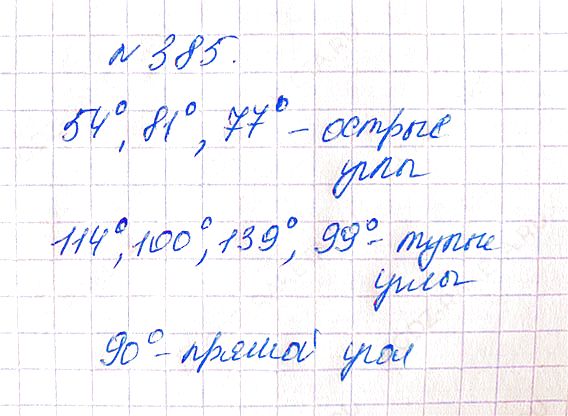 № 385.
54°, 81°, 77° – острые
углы
114°, 100°, 139°, 99° – тупые
углы
90° – прямой угол